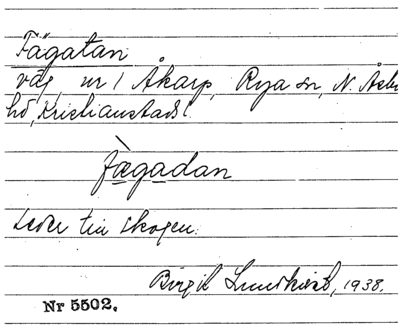 Fägatan
väg, nr 1 Åkarp, Rya sn, N. Åsbo
hd, Kristianstads l.
fæ̀gadan
Leder till skogen.
Birgit Lundkvist, 1938.
Nr 5502.